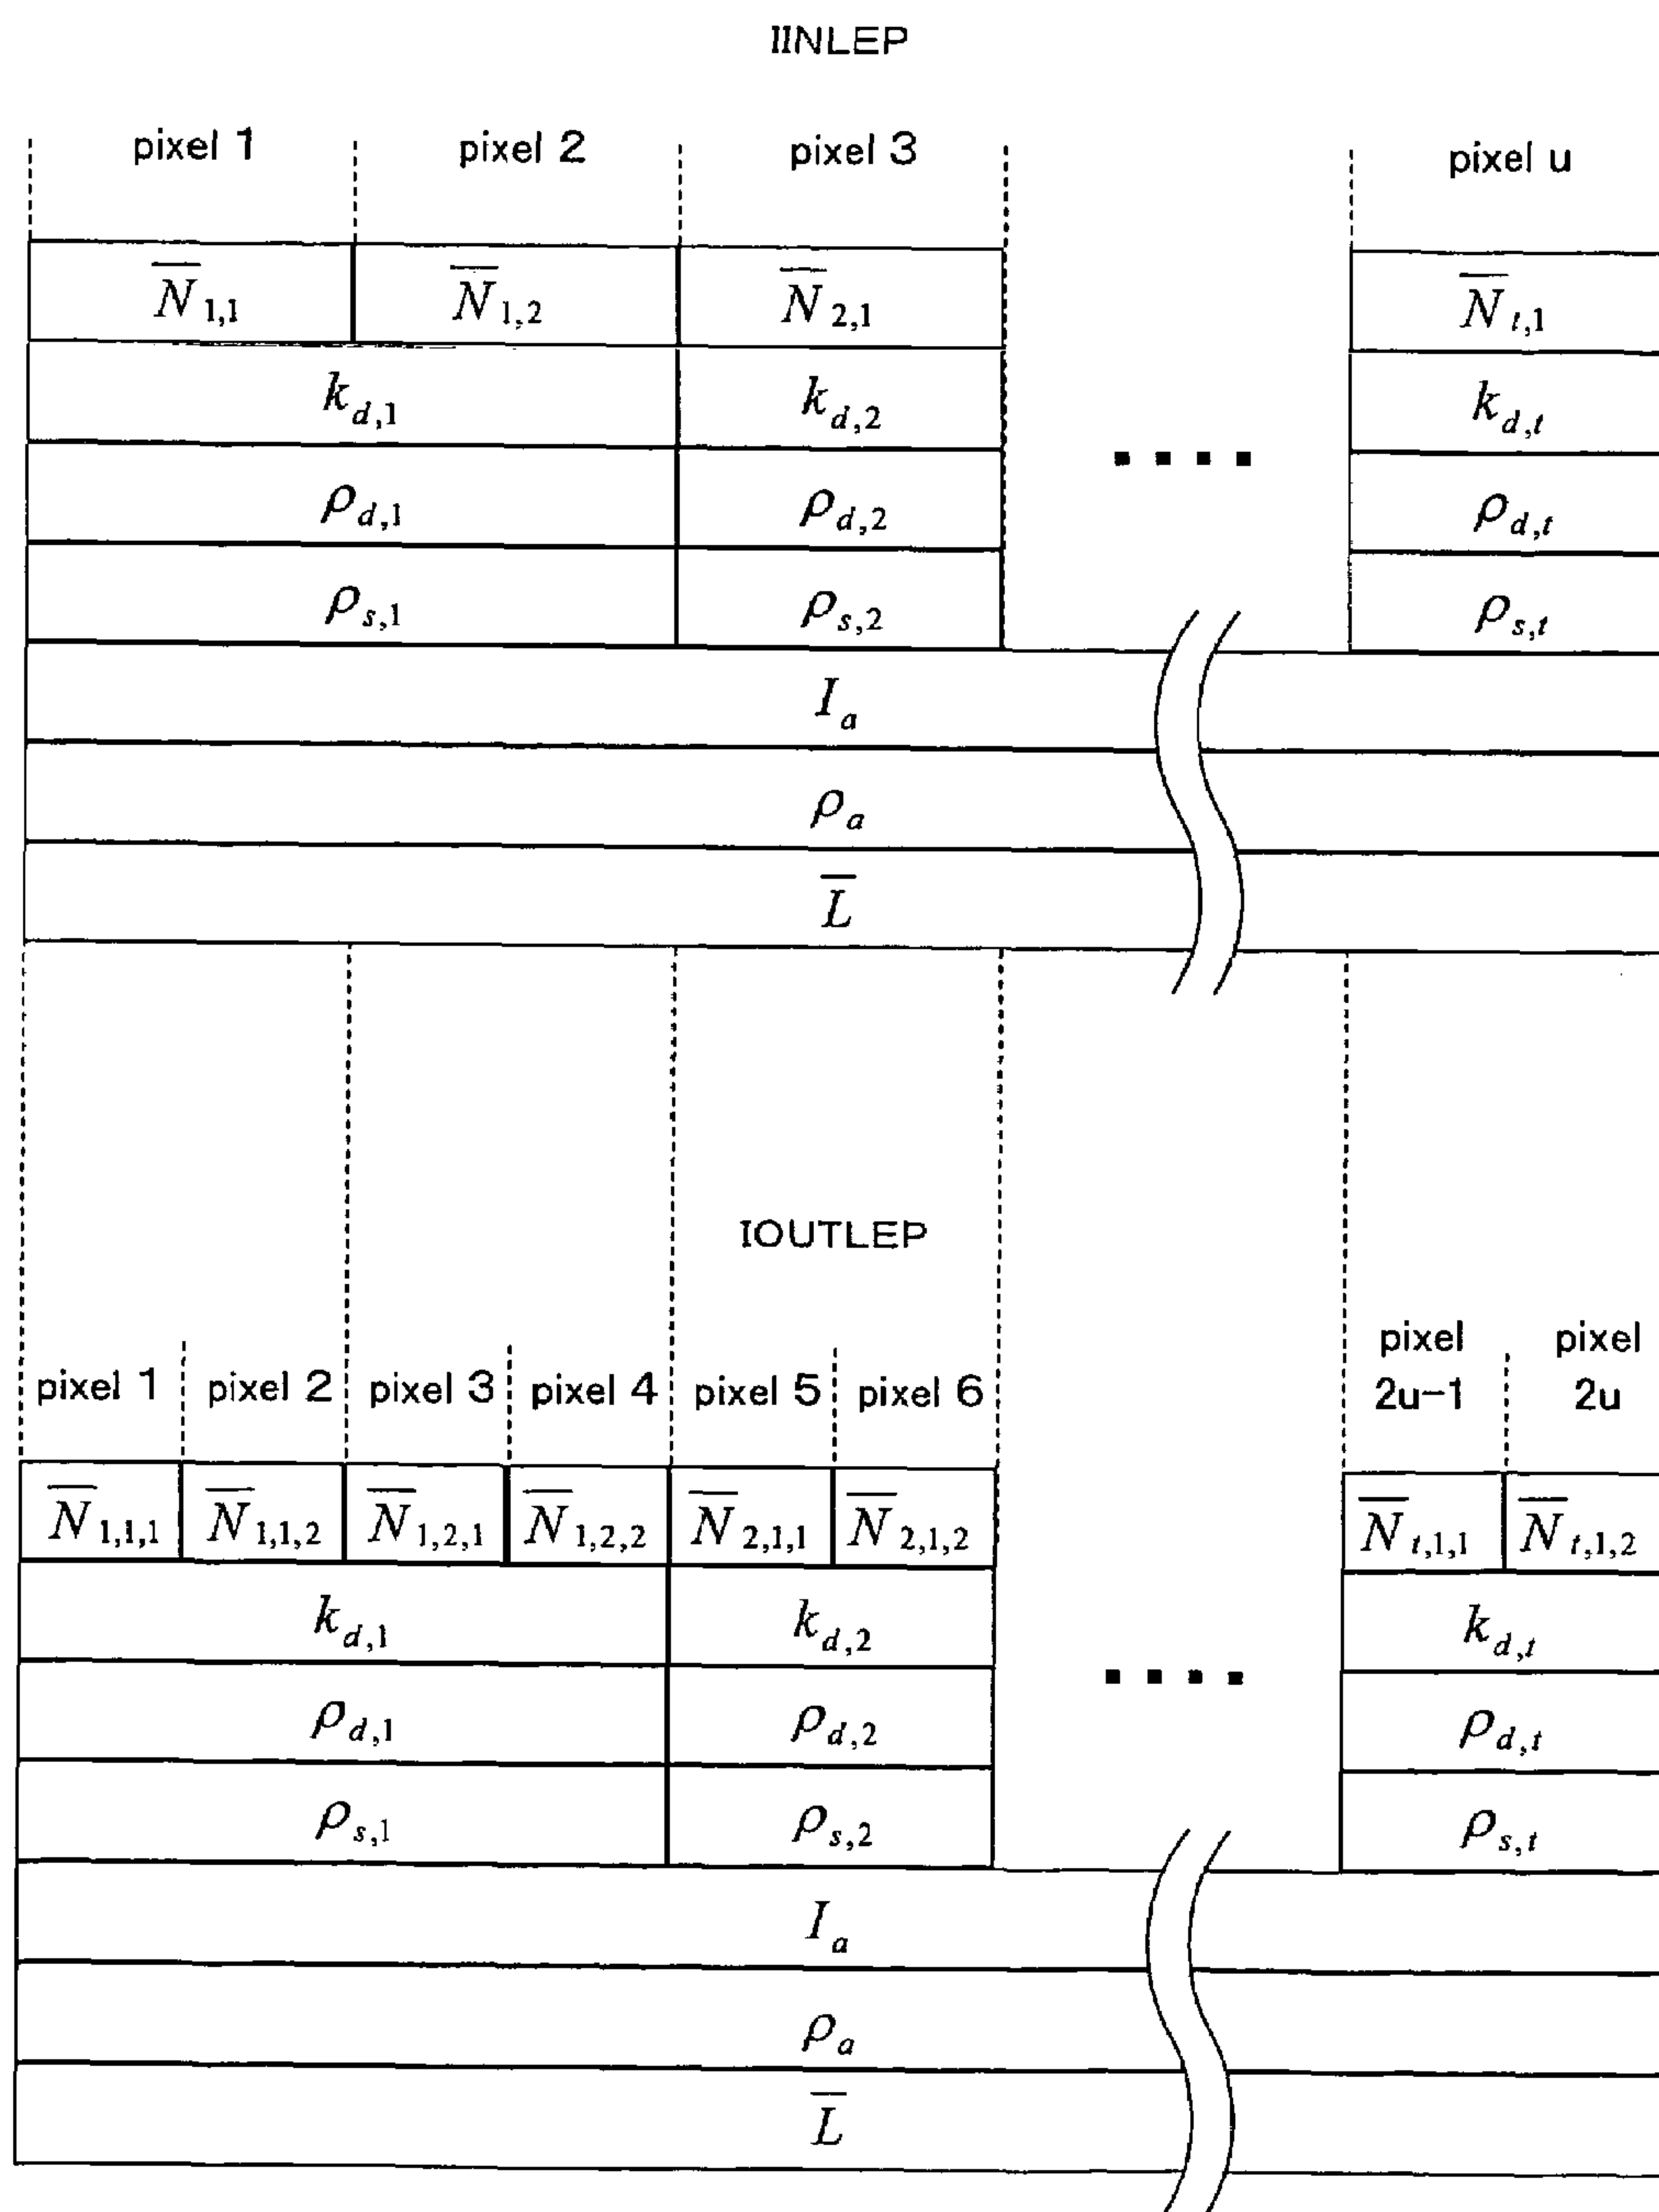 IINLEP
pixel 1 pixel 2 pixel 3 pixel u
N̅1,1 N̅1,2 N̅2,1 N̅t,1
kd,1 kd,2 kd,t
ρd,1 ρd,2 ρd,t
ρs,1 ρs,2 ρs,t
Ia
ρa
L̅
IOUTLEP
pixel pixel
pixel 1 pixel 2 pixel 3 pixel 4 pixel 5 pixel 6 2u-1 2u
N̅1,1,1 N̅1,1,2 N̅1,2,1 N̅1,2,2 N̅2,1,1 N̅2,1,2 N̅t,1,1 N̅t,1,2
kd,1 kd,2 kd,t
ρd,1 ρd,2 ρd,t
ρs,1 ρs,2 ρs,t
Ia
ρa
L̅